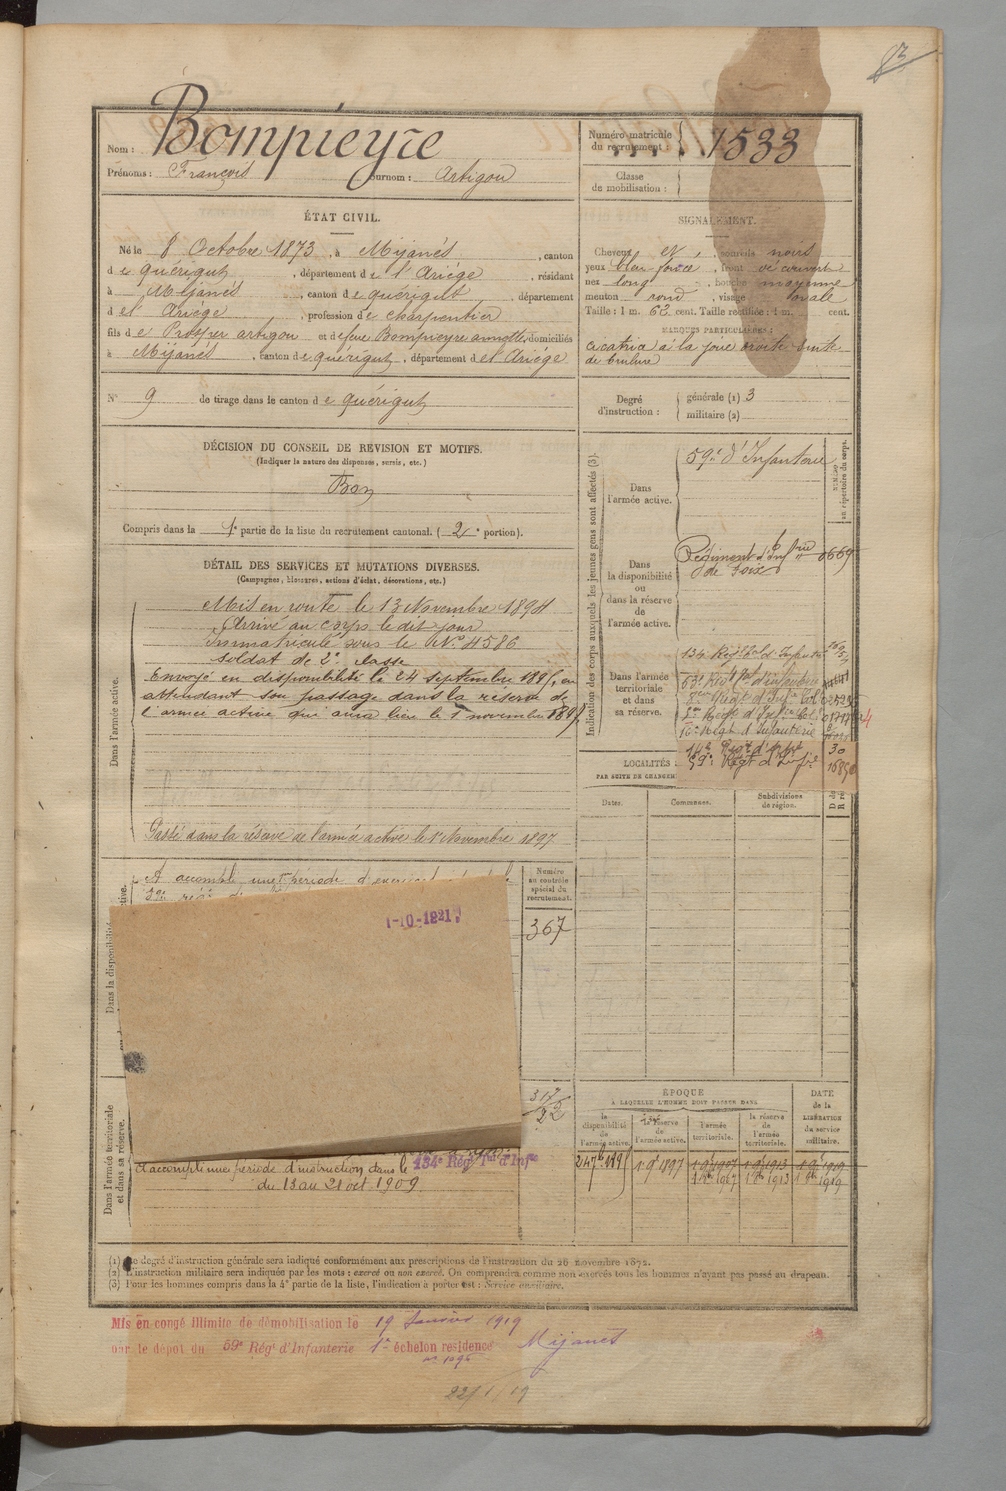 Nom : Bompieyre
Prénoms : François Surnom : Artigou
Numéro matricule du recrutement : 1533
Classe de mobilisation :
ÉTAT CIVIL.
Né le 8 Octobre 1873, à Mijanès, canton
de Quérigut, département de l'Ariège, résidant
à Mijanès, canton de Quérigut, département
de l'Ariège, profession de charpentier
fils de Prosper artigou et de feue Bompieyre annette, domiciliés
à Mijanès, canton de Quérigut, département de l'Ariège
N° 9 de tirage dans le canton de Quérigut
SIGNALEMENT.
Cheveux et, sourcils noirs
yeux bleu foncé, front découvert
nez long, bouche moyenne
menton rond, visage ovale
Taille : 1 m. 62 cent. Taille rectifiée : 1 m. cent.
MARQUES PARTICULIÈRES :
cicatrice à la joue droite suite
de brulure
Degré d'instruction : générale (1) 3
militaire (2)
DÉCISION DU CONSEIL DE REVISION ET MOTIFS.
(Indiquer la nature des dispenses, sursis, etc.)
Bon
Compris dans la 1e partie de la liste du recrutement cantonal. (2e portion).
DÉTAIL DES SERVICES ET MUTATIONS DIVERSES.
(Campagnes, blessures, actions d'éclat, décorations, etc.)
Dans l'armée active.
Mis en route le 13 Novembre 1894
Arrivé au corps le dit jour
Immatriculé sous le N° 4586
Soldat de 2e classe
Envoyé en disponibilité le 24 septembre 1897, en
attendant son passage dans la réserve de
l'armée active qui aura lieu le 1 novembre 1897.
Passé dans la réserve de l'armée active le 1er Novembre 1897
Indication des corps auxquels les jeunes gens sont affectés (3).
NUMÉRO au répertoire du corps.
Dans l'armée active. 59e d'Infanterie
Dans la disponibilité ou dans la réserve de l'armée active.
Régiment d'Infrie de Foix 0669
Dans l'armée territoriale et dans sa réserve.
134 Régt d'Infanterie
Régt d'Infanterie
Régt d'Infie
14e Régt d'Infie 30
59e Régt d'Infie
LOCALITÉS
PAR SUITE DE CHANGEM
Dates. Communes. Subdivisions de région.
Dans la disponibilité
A accompli une 1re période d'exercices
Numéro au contrôle spécial du recrutement.
367
1-10-1921
317/22
Dans l'armée territoriale et dans sa réserve.
A accompli une période d'instruction dans le 134e Régt Tal d'Infie
du 13 au 21 oct. 1909
ÉPOQUE
À LAQUELLE L'HOMME DOIT PASSER DANS
la disponibilité de l'armée active.
la réserve de l'armée active.
l'armée territoriale.
la réserve de l'armée territoriale.
DATE de la LIBÉRATION du service militaire.
1 9bre 1897
1 8bre 1907 1 8bre 1913 1 8bre 1919
(1) Le degré d'instruction générale sera indiqué conformément aux prescriptions de l'instruction du 26 novembre 1872.
(2) L'instruction militaire sera indiquée par les mots : exercé ou non exercé. On comprendra comme non exercés tous les hommes n'ayant pas passé au drapeau.
(3) Pour les hommes compris dans la 4e partie de la liste, l'indication à porter est : Service auxiliaire.
Mis en congé illimité de démobilisation le 19 Janvier 1919
par le dépôt du 59e Régt d'Infanterie 1er échelon résidence Mijanès
22/1/19